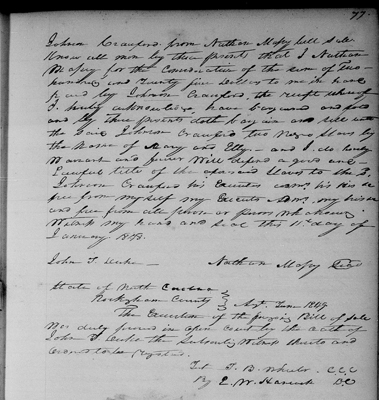 77
Johnson Crauford from Nathan Massy bill sale
Know all men by these presents that I Nathan
Massy for the Consideration of the sum of two
hundred and twenty five dollars to me in hand
paid by Johnson Crauford the receipt whereof
I hereby acknowledge have bargained and sold
and by these presents doth bargain and sell unto
the said Johnson Crauford two negro slaves by
the name of Mary and Etty and I do hereby
Warrant and forever Will defend a good and
Lawful title of the aforesaid slaves to the sd
Johnson Crauford his Executors adms his heirs
free from my self my Executors Adms my heirs
and free from all person or persons Whatsoever
Witness my hand and seal this 11th day of
January 1843
John T. Nathan Massy Seal
State of North Carolina
Rockingham County Term 1849
The Execution of the foregoing Bill of Sale
Was duly proved in open Court by the oath of
John the Subscribing Witness thereto and
ordered to be Registered
Test T. B. Wheeler C.C.C
By E. W. Hancock D.C